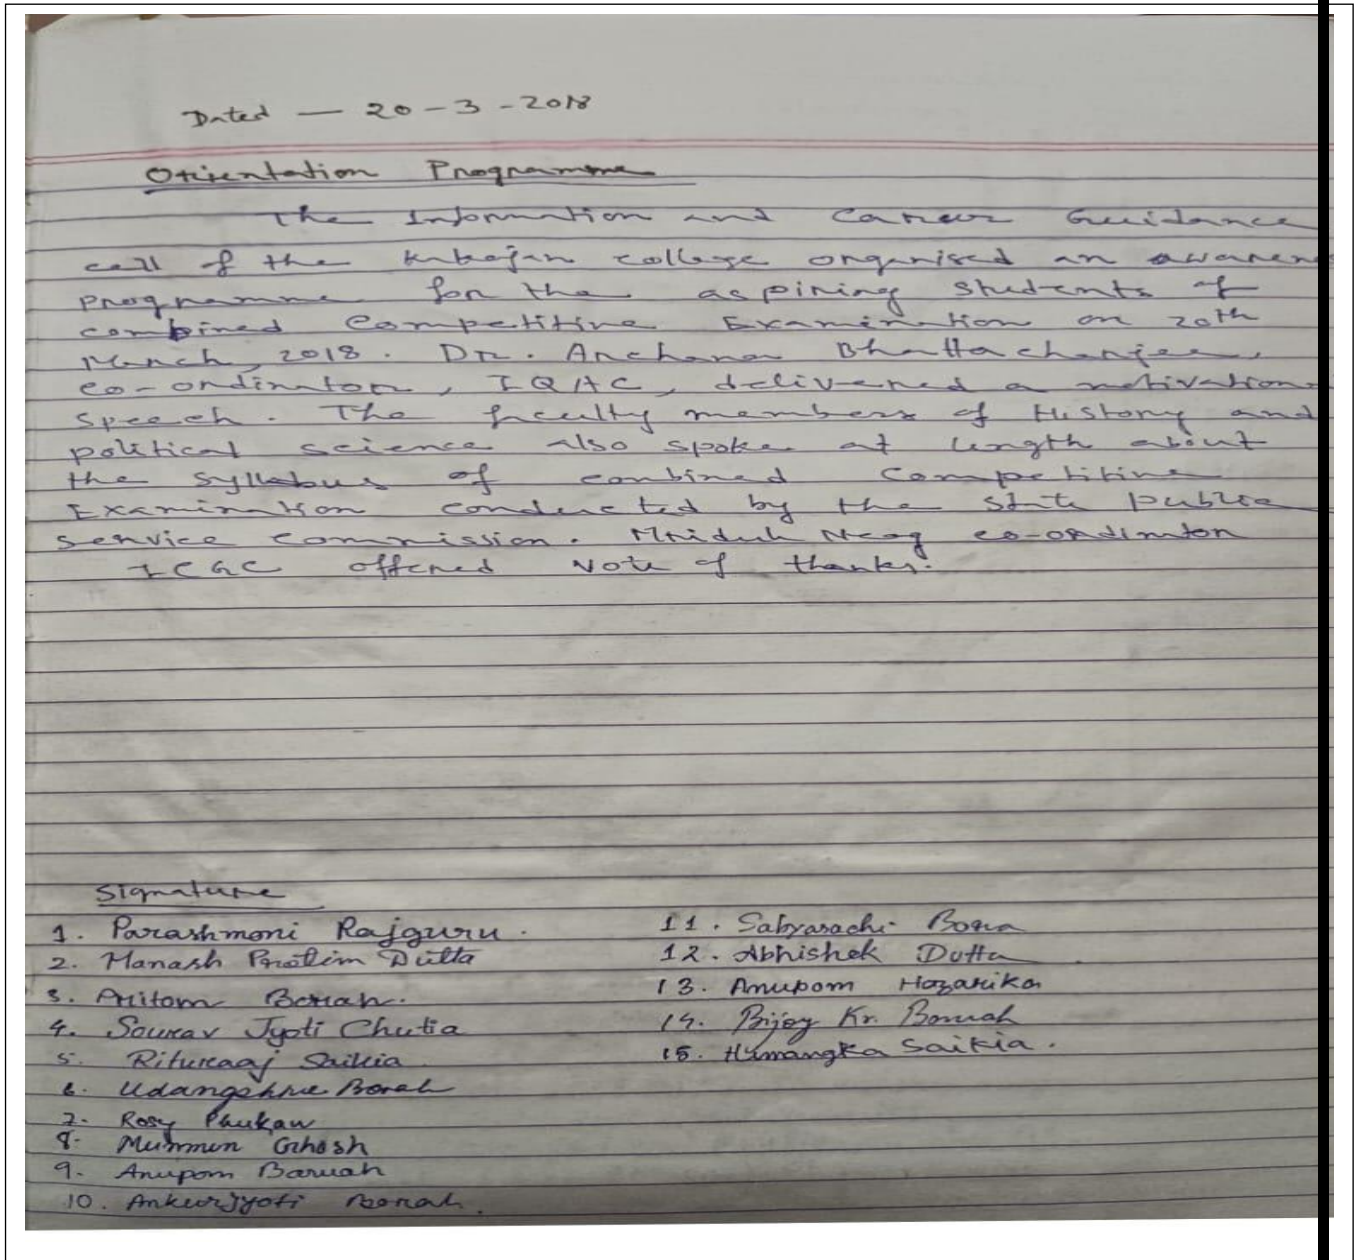 Dated — 20-3-2018
Orientation Programme
The Information and Career Guidance
cell of the Kakojan college organised an awaren
programme for the aspiring students of
combined Competitive Examination on 20th
March, 2018. Dr. Archana Bhattacharjee,
co-ordinator, IQAC, delivered a motivation
speech. The faculty members of History and
political science also spoke at length about
the syllabus of combined Competitive
Examination conducted by the state public
service commission. Mridul Neog co-ordinator
ICGC offered Vote of thanks.
Signature
1. Parashmoni Rajguru.
2. Manash Pratim Dutta
3. Pritom Borah.
4. Sourav Jyoti Chutia
5. Rituraaj Saikia
6. Udangshree Borah
7. Rosy Phukan
8. Munmun Ghosh
9. Anupom Baruah
10. Ankurjyoti Borah.
11. Sabyasachi Bora
12. Abhishek Dutta
13. Anupom Hazarika
14. Bijoy Kr. Boruah
15. Himangka Saikia.